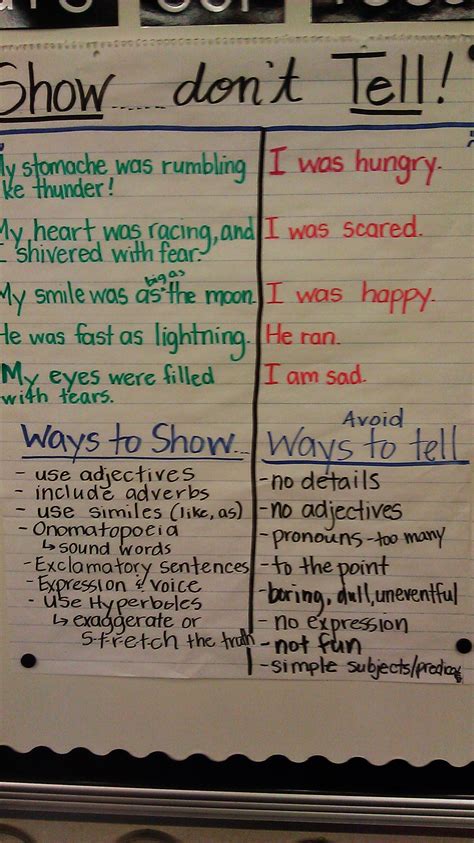 Show......don't Tell!
My stomache was rumbling
like thunder!
I was hungry.
My heart was racing, and
I shivered with fear.
I was scared.
big as
My smile was as the moon.
I was happy.
He was fast as lightning.
He ran.
My eyes were filled
with tears.
I am sad.
Ways to Show...
- use adjectives
- include adverbs
- use similes (like, as)
- Onomatopoeia
↳ sound words
- Exclamatory sentences
- Expression & voice
- use Hyperboles
↳ exaggerate or
s-t-r-e-t-c-h the truth
Avoid
Ways to tell
- no details
- no adjectives
- pronouns - too many
- to the point
- boring, dull, uneventful
- no expression
- not fun
- simple subjects/predicates